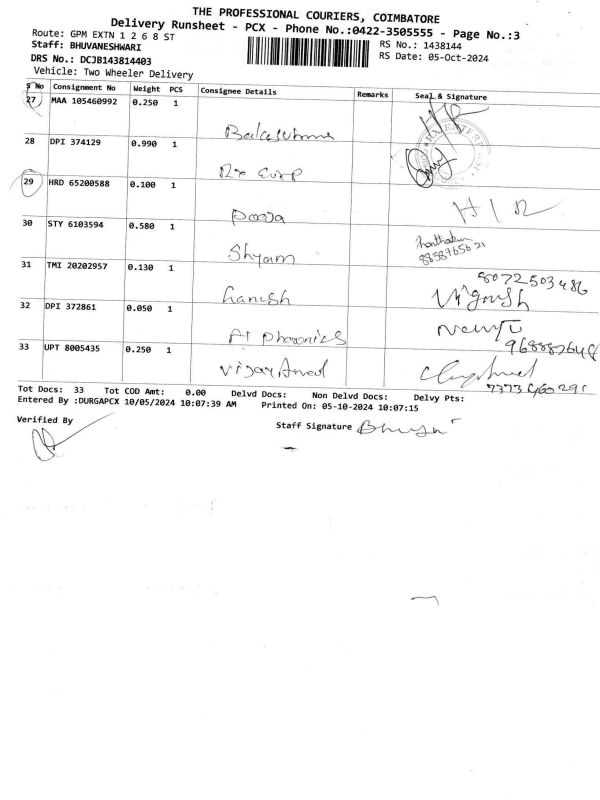 THE PROFESSIONAL COURIERS, COIMBATORE
Delivery Runsheet - PCX - Phone No.:0422-3505555 - Page No.:3
Route: GPM EXTN 1 2 6 8 ST
RS No.: 1438144
Staff: BHUVANESHWARI
RS Date: 05-Oct-2024
DRS No.: DCJB143814403
Vehicle: Two Wheeler Delivery
S No Consignment No Weight PCS Consignee Details Remarks Seal & Signature
27 MAA 105460992 0.250 1
28 DPI 374129 0.990 1
29 HRD 65200588 0.100 1
Pooja
30 STY 6103594 0.580 1
Shyam
31 TMI 20202957 0.130 1
Ganesh
8072503486
Vignesh
32 DPI 372861 0.050 1
33 UPT 8005435 0.250 1
Tot Docs: 33 Tot COD Amt: 0.00 Delvd Docs: Non Delvd Docs: Delvy Pts:
Entered By :DURGAPCX 10/05/2024 10:07:39 AM Printed On: 05-10-2024 10:07:15
Verified By
Staff Signature